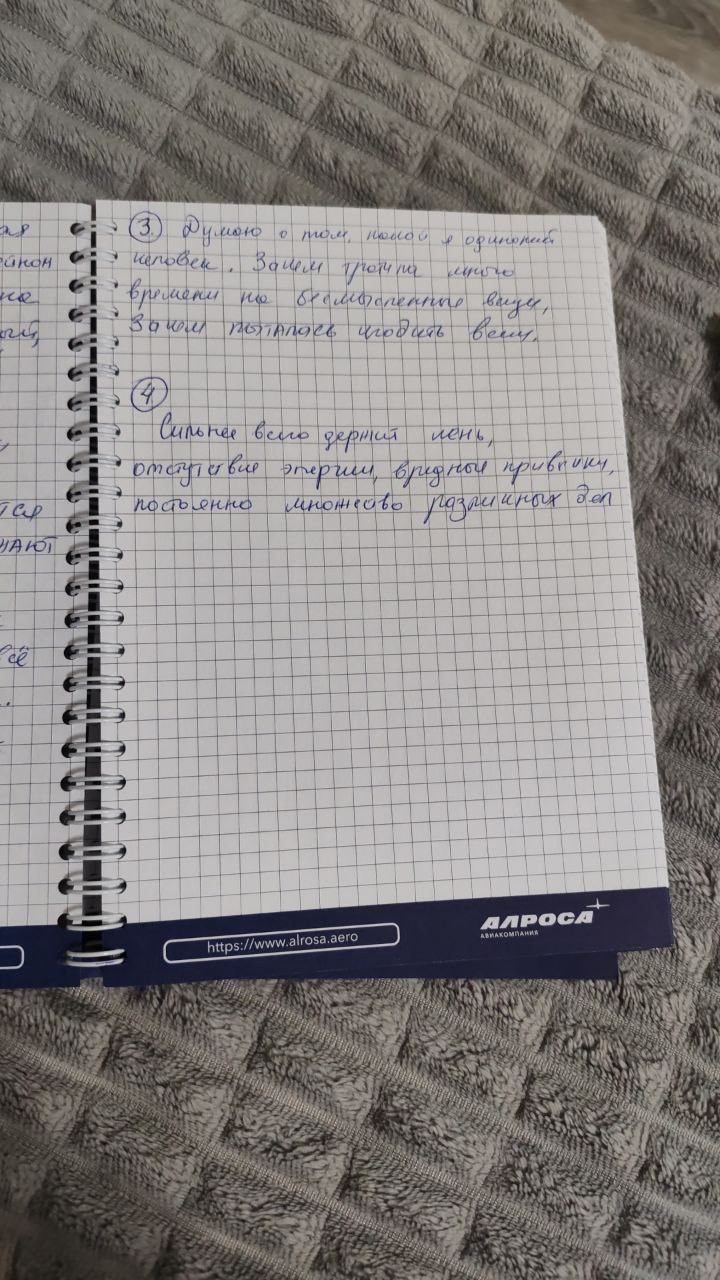 ая
йнон
на
ый,
тся
жают
всё
③ Думаю о том, какой я одинокий
человек. Зачем тратила много
времени на бесмысленные вещи,
Зачем пыталась угодить всем.
④
Сильнее всего держит лень,
отсутствие энергии, вредные привычки,
постоянно множество различных дел
https://www.alrosa.aero
АЛРОСА
АВИАКОМПАНИЯ